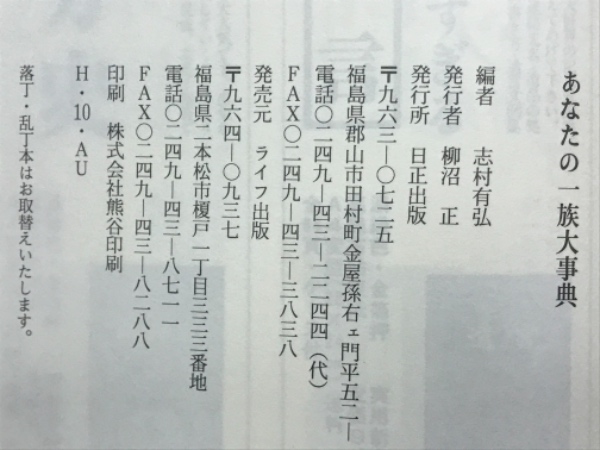 あなたの一族大事典
編者　志村有弘
発行者　柳沼　正
発行所　日正出版
〒九六三―〇七二五
福島県郡山市田村町金屋孫右ェ門平五二―
電話〇二四九―四三―二二四四（代）
FAX〇二四九―四三―三八三八
発売元　ライフ出版
〒九六四―〇九三七
福島県二本松市榎戸一丁目三三三番地
電話〇二四九―四三―八七一一
FAX〇二四九―四三―八二八八
印刷　株式会社熊谷印刷
H・10・AU
落丁・乱丁本はお取替えいたします。